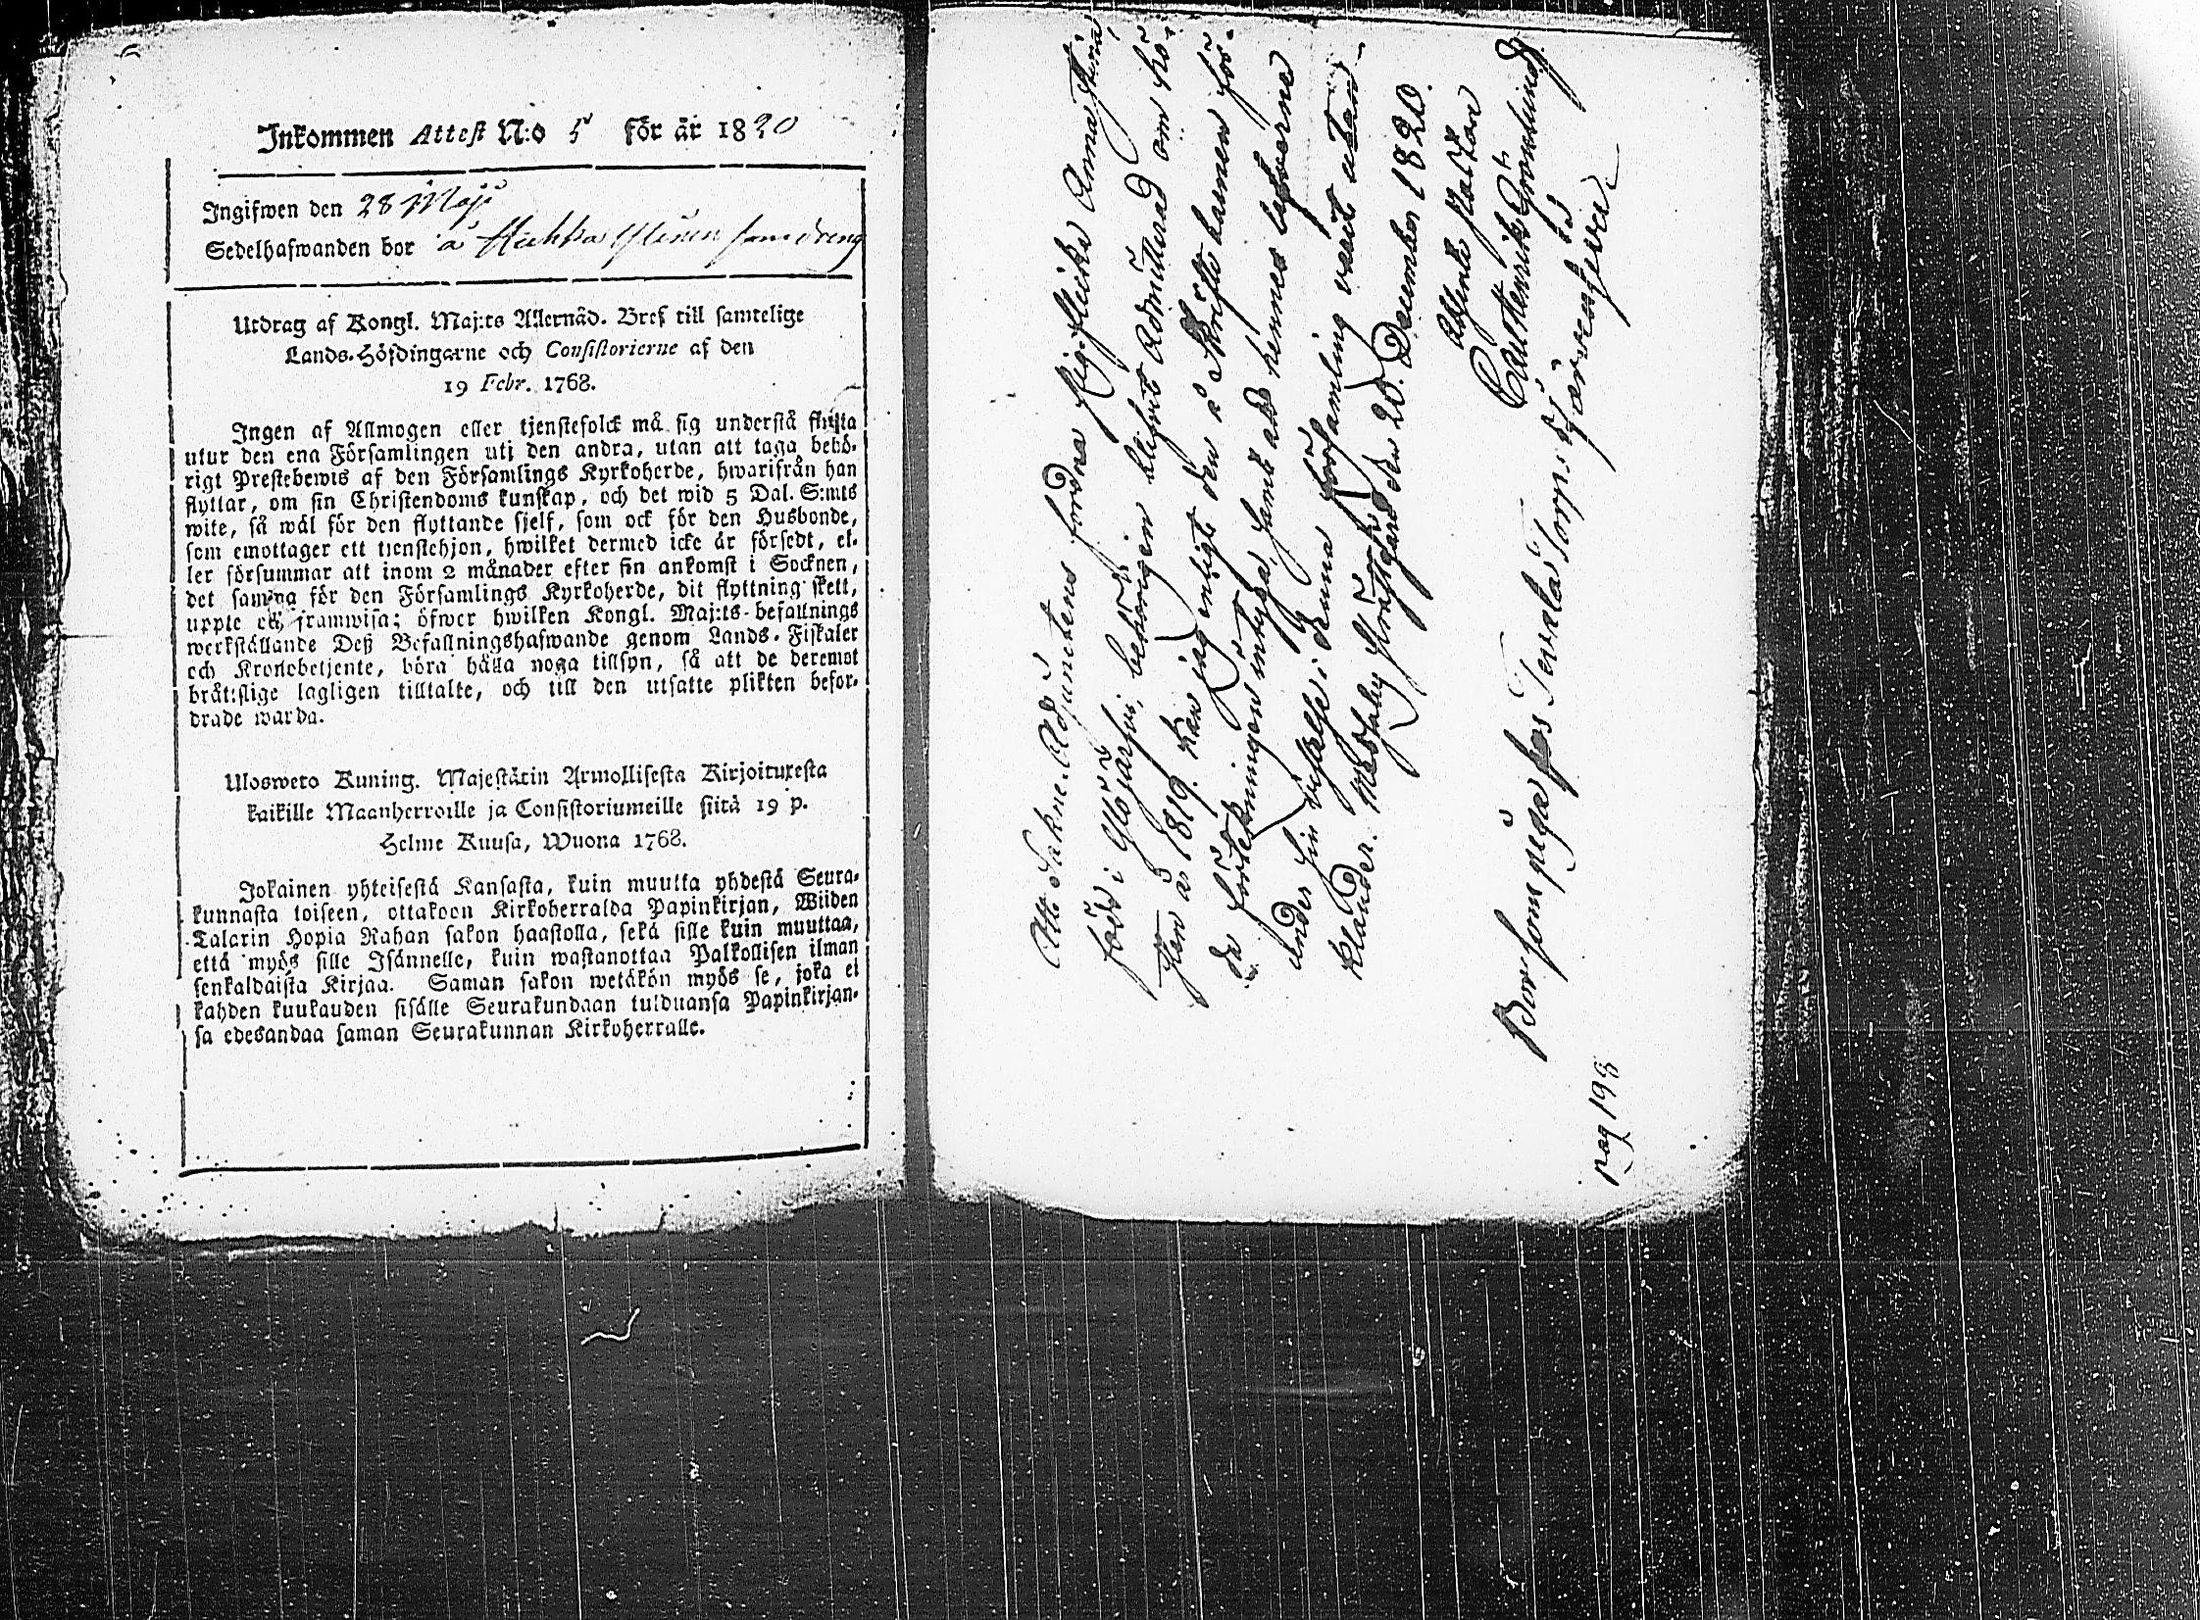 Inkommen Attest N:o 5 för år 1820
Ingifwen den 28 Maji
Sedelhafwanden bor å som dreng
Utdrag af Kongl. Maj:ts Allernåd. Bref till samtelige
Lands-Höfdingarne och Consistorierne af den
19 Febr. 1768.
Ingen af Allmogen eller tjenstefolck må sig understå flytta
utur den ena Församlingen uti den andra, utan att taga behö-
rigt Prestebewis af den Församlings Kyrkoherde, hwarifrån han
flyttar, om sin Christendoms kunskap, och det wid 5 Dal. S:mts
wite, så wäl för den flyttande sjelf, som ock för den Husbonde,
som emottager ett tienstehjon, hwilket dermed icke är försedt, el-
ler försummar att inom 2 månader efter sin ankomst i Socknen,
det samma för den Församlings Kyrkoherde, dit flyttning skett,
uppte och framwisa; öfwer hwilken Kongl. Maj:ts befallnings
werkställande Deß Befallningshafwande genom Lands-Fiskaler
och Kronobetjente, böra hålla noga tillsyn, så att de deremot
brottslige lagligen tilltalte, och till den utsatte plikten befor-
drade warda.
Ulosweto Kuning. Majestätin Armollisesta Kirjoituxesta
kaikille Maanherroille ja Consistoriumeille siitä 19 p.
Helme Kuusa, Wuona 1768.
Jokainen yhteisestä Kansasta, kuin muutta yhdestä Seura-
kunnasta toiseen, ottakoon Kirkoherralda Papinkirjan, Wiiden
Talarin Hopia Rahan sakon haastolla, sekä sille kuin muuttaa,
että myös sille Isännelle, kuin wastanottaa Palkollisen ilman
senkaldaista Kirjaa. Saman sakon wetäkön myös se, joka ei
kahden kuukauden sisälle Seurakundaan tulduansa Papinkirjan-
sa edesandaa saman Seurakunnan Kirkoherralle.
Att Sakne-Adjunctens fordna pig-flicka Anna
född i Ylöjärfvi, behörigen blifvit Admitterad
år 1819. kan jag enligt den å Skriftekammaren för-
da förteckningen intyga, samt att hennes lefverne
under sin vistelse i denna församling varit utan
klander. Messuby Prästgård den 20. December 1820.
Carl Henrik Grönlund
Bor som piga hos Torp.
pag 198